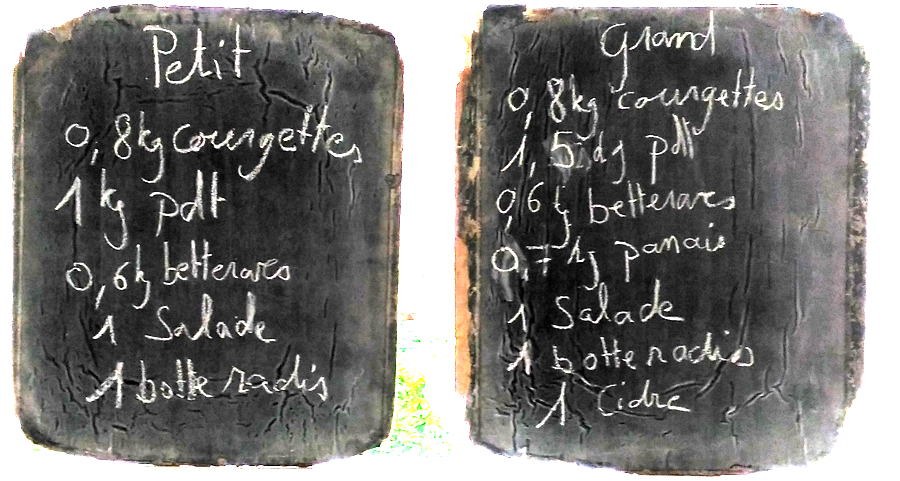 Petit
0,8kg courgettes
1 kg pdt
0,6k betteraves
1 Salade
1 botte radis
Grand
0,8kg courgettes
1,5 kg pdt
0,6 kg betteraves
0,7 kg panais
1 Salade
1 botte radis
1 Cidre